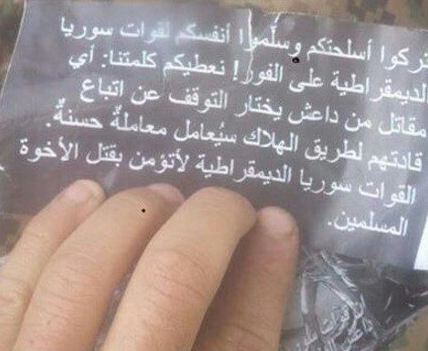 تركوا أسلحتكم وسلموا أنفسكم لقوات سوريا
الديمقراطية على الفور! نعطيكم كلمتنا: أي
مقاتل من داعش يختار التوقف عن اتباع
قادتهم لطريق الهلاك سيُعامل معاملةٌ حسنةٌ.
القوات سوريا الديمقراطية لأتؤمن بقتل الأخوة
المسلمين.